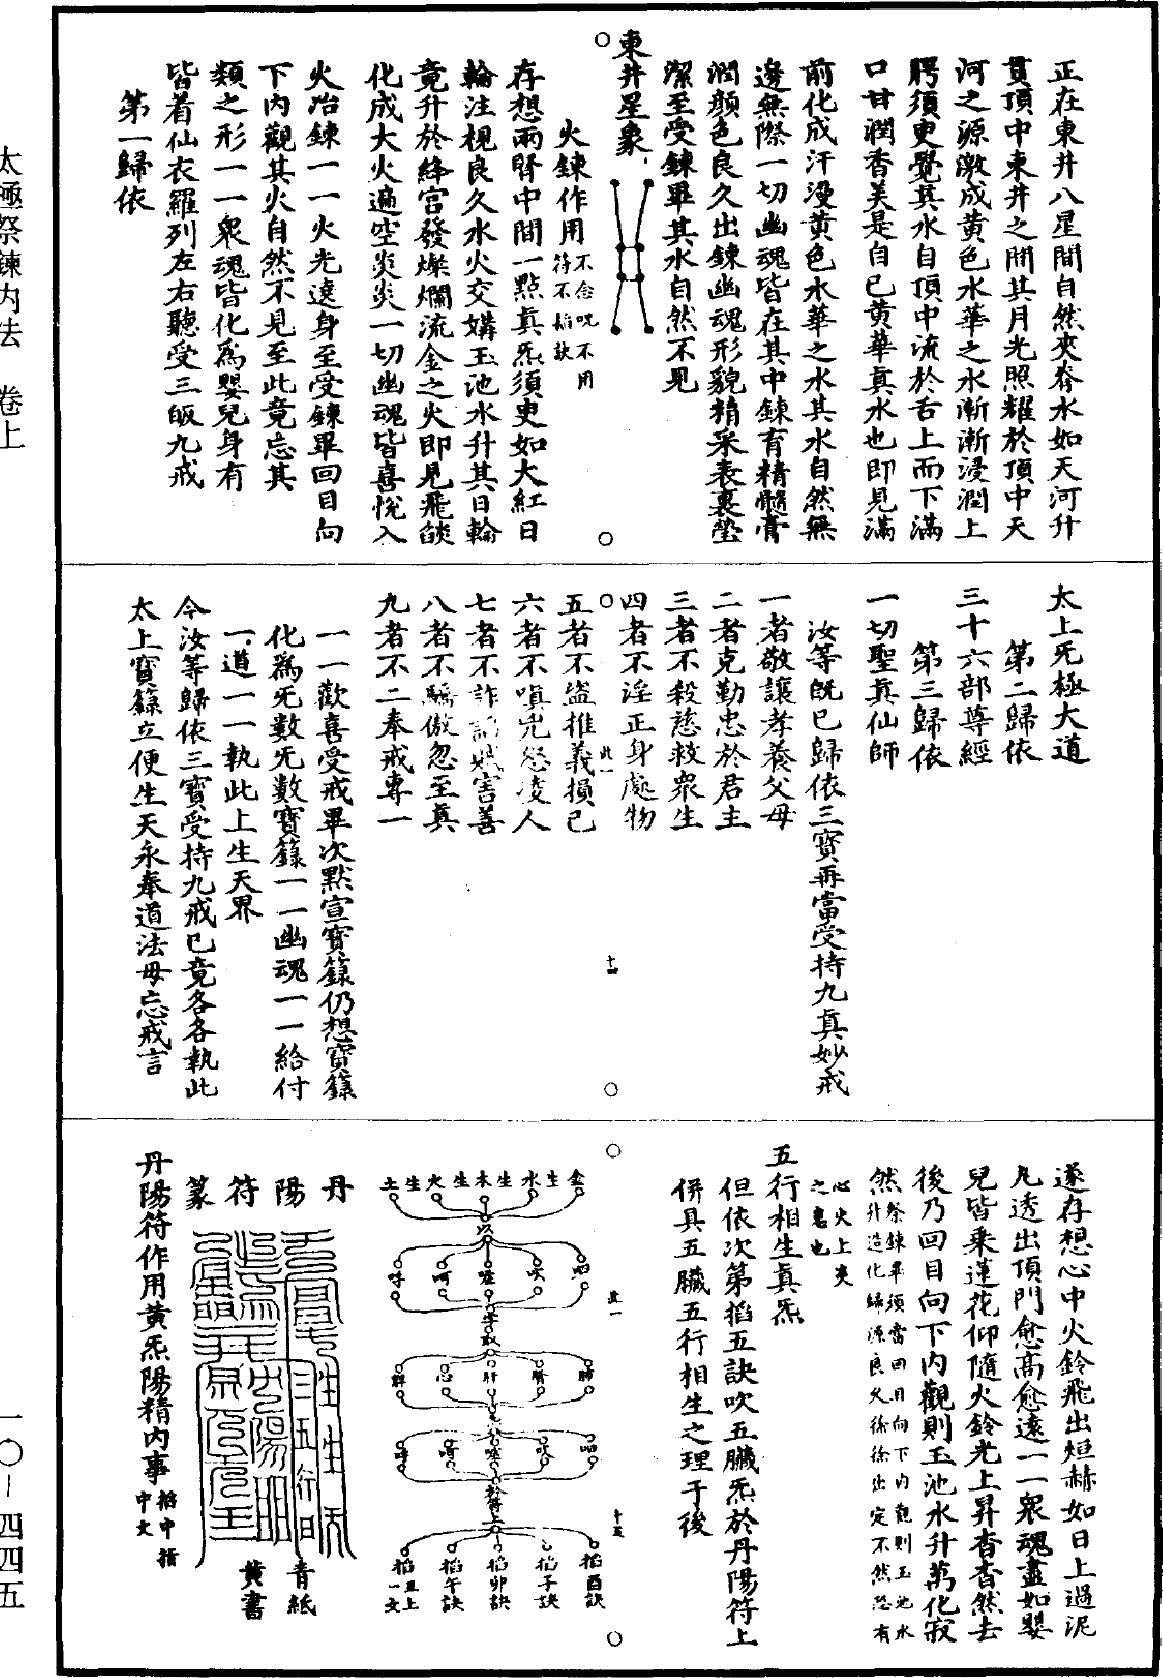 正在東井八星間自然夾脊水如天河升
貫頂中東井之間其月光照耀於頂中天
河之源激成黃色水華之水漸漸浸潤上
腭須臾覺其水自頂中流於舌上而下滿
口甘潤香美是自己黃華真水也即見滿
前化成汗漫黃色水華之水其水自然無
邊無際一切幽魂皆在其中鍊育精髓膏
潤顏色良久出鍊幽魂形貌精采表裏瑩
潔至受鍊畢其水自然不見
東井星象
火鍊作用不念呪不用
符不掐訣
存想兩腎中間一點真炁須臾如大紅日
輪注視良久水火交媾玉池水升其日輪
竟升於絳宮發燦爛流金之火即見飛燄
化成大火遍空炎炎一切幽魂皆喜悅入
火冶鍊一一火光遶身至受鍊畢回目向
下內觀其火自然不見至此竟忘其
類之形一一衆魂皆化爲嬰兒身有
皆着仙衣羅列左右聽受三皈九戒
第一歸依
太上无極大道
第二歸依
三十六部尊經
第三歸依
一切聖真仙師
汝等旣已歸依三寶再當受持九真妙戒
一者敬讓孝養父母
二者克勤忠於君主
三者不殺慈救衆生
四者不淫正身處物
五者不盜推義損己
六者不嗔兇怒凌人
七者不詐諂賊害善
八者不驕傲忽至真
九者不二奉戒專一
一一歡喜受戒畢次默宣寶籙仍想寶籙
化爲无數无數寶籙一一幽魂一一給付
一道一一執此上生天界
今汝等歸依三寶受持九戒已竟各各執此
太上寶籙立便生天永奉道法毋忘戒言
十四
遂存想心中火鈴飛出烜赫如日上過泥
丸透出頂門愈高愈遠一一衆魂盡如嬰
兒皆乘蓮花仰隨火鈴光上昇杳杳然去
後乃回目向下內觀則玉池水升萬化寂
然祭鍊畢須當回目向下內觀則玉池水
升造化歸源良久徐徐出定不然恐有
心火上炎
之患也
五行相生真炁
但依次第掐五訣吹五臟炁於丹陽符上
併具五臟五行相生之理于後
十五
金生水生木生火生土
以
呬吹嘘呵呼
字取
肺腎肝心脾
之炁
呬吹嘘呵呼
於符上
掐酉訣
掐子訣
掐卯訣
掐午訣
掐丑上一文
丹陽符篆
青紙
黃書
丹陽符作用黃炁陽精內事掐中指
中文
太極祭鍊內法　卷上
一〇－四四五